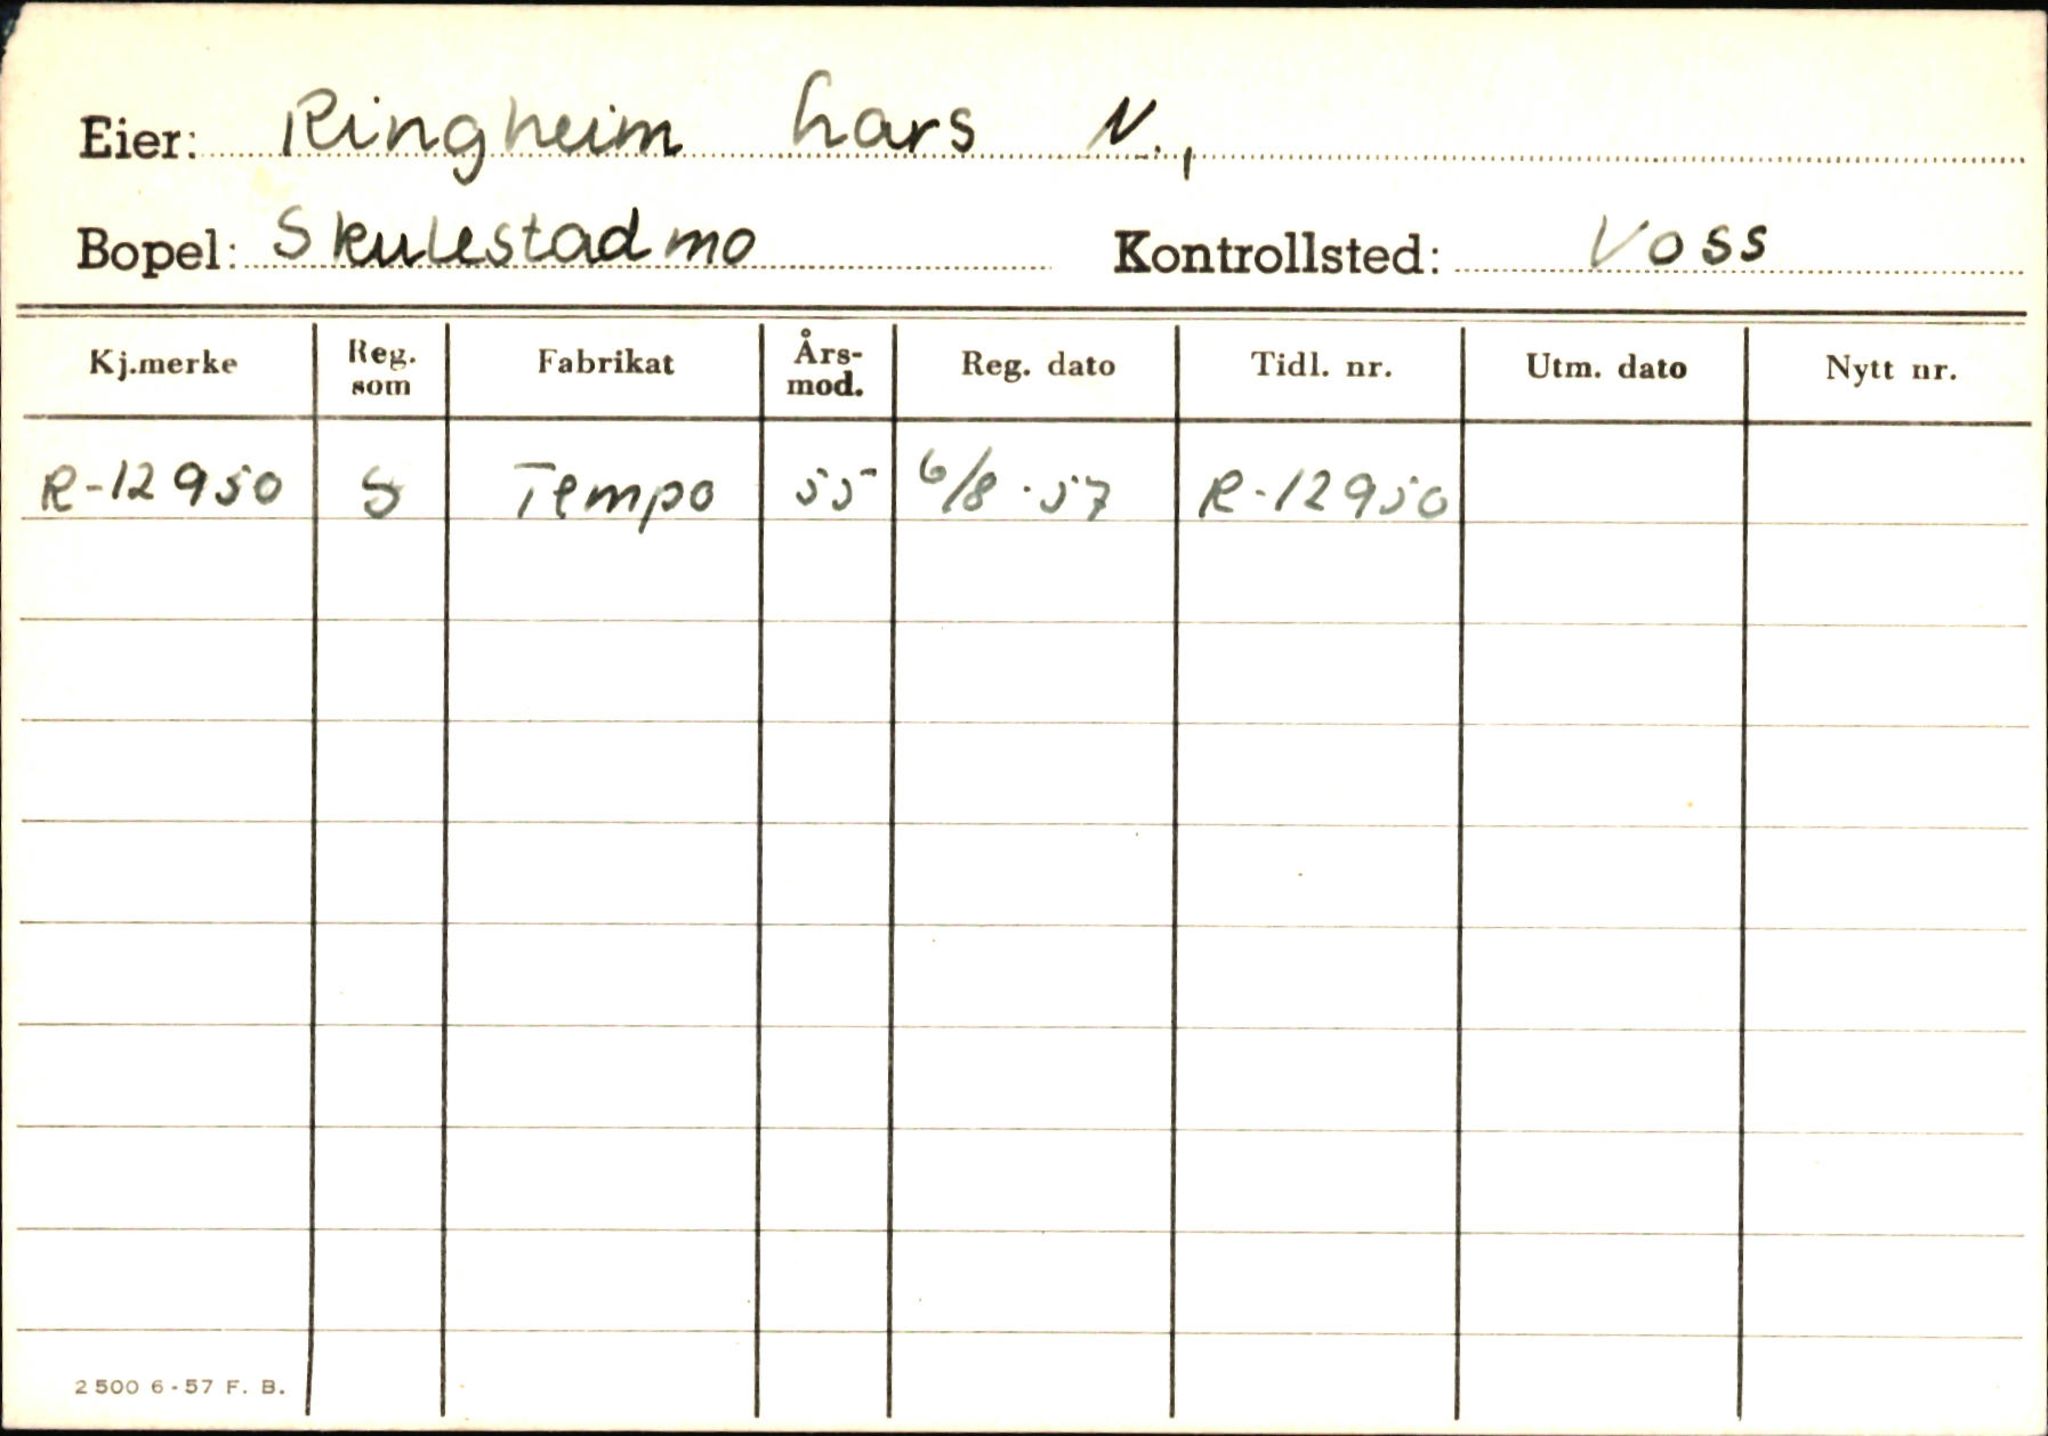 Eier: Ringheim Lars N.,
Bopel: Skulestadmo Kontrollsted: Voss
Kj.merke Reg. som Fabrikat Års-mod. Reg. dato Tidl. nr. Utm. dato Nytt nr.
R-12950 S Tempo 55 6/8-57 R-12950
2500 6-57 F. B.